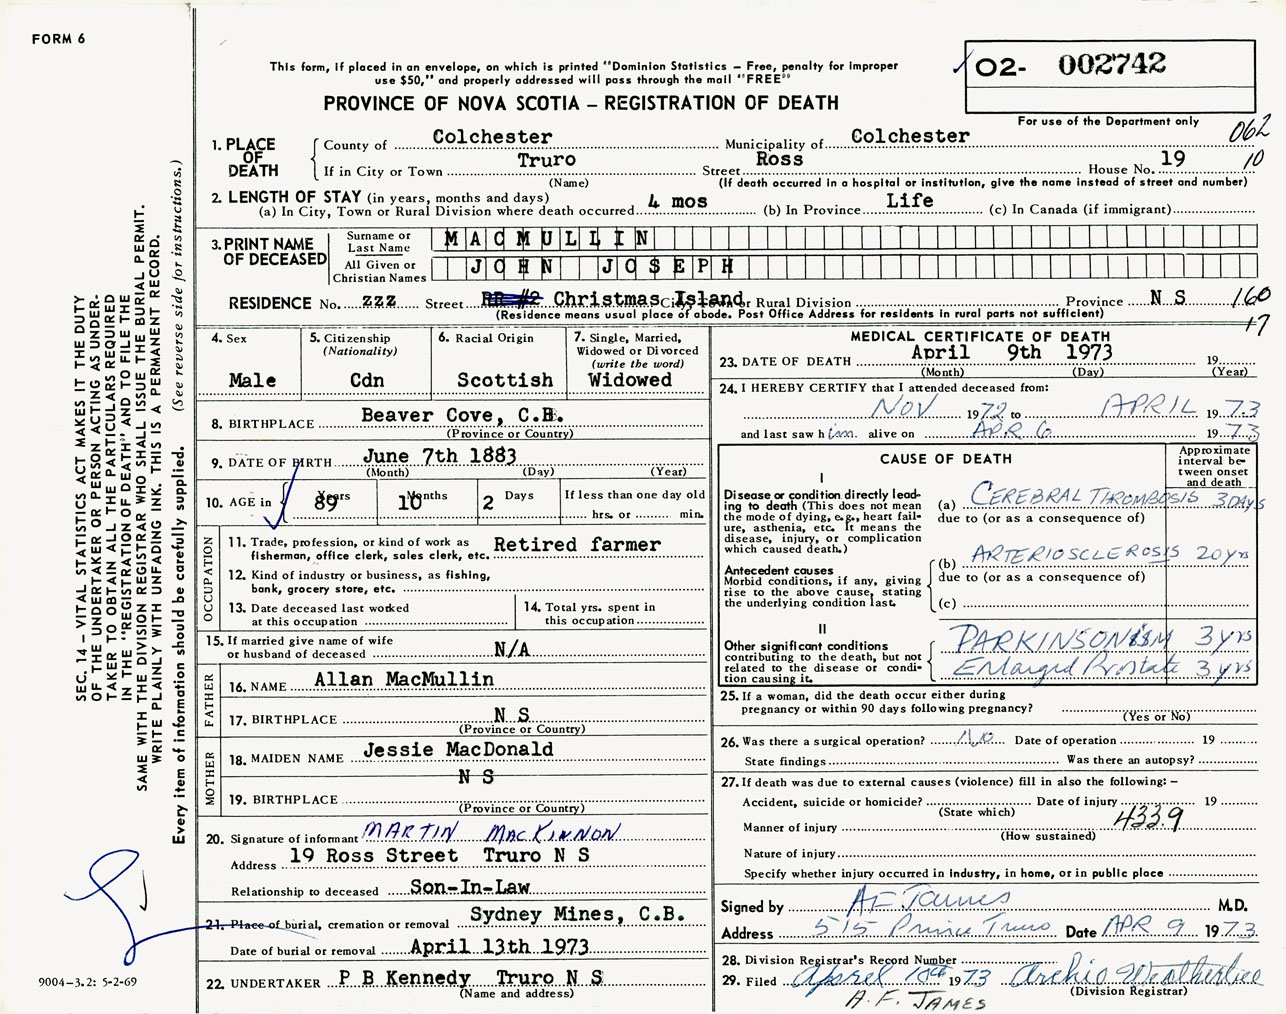 FORM 6
This form, if placed in an envelope, on which is printed "Dominion Statistics – Free, penalty for improper
use $50," and properly addressed will pass through the mail "FREE"
PROVINCE OF NOVA SCOTIA – REGISTRATION OF DEATH
02- 002742
For use of the Department only
062
10
1. PLACE OF DEATH
County of Colchester Municipality of Colchester
If in City or Town Truro Street Ross House No. 19
(Name) (If death occurred in a hospital or institution, give the name instead of street and number)
2. LENGTH OF STAY (in years, months and days)
(a) In City, Town or Rural Division where death occurred 4 mos (b) In Province Life (c) In Canada (if immigrant)
3. PRINT NAME OF DECEASED
Surname or Last Name MACMULLIN
All Given or Christian Names JOHN JOSEPH
RESIDENCE No. zzz Street RR #2 Christmas Island City, Town or Rural Division Province N S
160
17
(Residence means usual place of abode. Post Office Address for residents in rural parts not sufficient)
4. Sex Male
5. Citizenship (Nationality) Cdn
6. Racial Origin Scottish
7. Single, Married, Widowed or Divorced (write the word) Widowed
8. BIRTHPLACE Beaver Cove, C.B.
(Province or Country)
9. DATE OF BIRTH June 7th 1883
(Month) (Day) (Year)
10. AGE in 89 Years 10 Months 2 Days If less than one day old
hrs. or min.
OCCUPATION
11. Trade, profession, or kind of work as
fisherman, office clerk, sales clerk, etc. Retired farmer
12. Kind of industry or business, as fishing,
bank, grocery store, etc.
13. Date deceased last worked
at this occupation
14. Total yrs. spent in
this occupation
15. If married give name of wife
or husband of deceased N/A
FATHER
16. NAME Allan MacMullin
17. BIRTHPLACE N S
(Province or Country)
MOTHER
18. MAIDEN NAME Jessie MacDonald
N S
19. BIRTHPLACE
(Province or Country)
20. Signature of informant MARTIN MACKINNON
Address 19 Ross Street Truro N S
Relationship to deceased Son-In-Law
21. Place of burial, cremation or removal Sydney Mines, C.B.
Date of burial or removal April 13th 1973
22. UNDERTAKER P B Kennedy Truro N S
(Name and address)
MEDICAL CERTIFICATE OF DEATH
23. DATE OF DEATH April 9th 1973 19
(Month) (Day) (Year)
24. I HEREBY CERTIFY that I attended deceased from:
NOV 1972 to APRIL 1973
and last saw him alive on APR 6 1973
CAUSE OF DEATH
Approximate interval between onset and death
I
Disease or condition directly lead-
ing to death (This does not mean
the mode of dying, e.g., heart fail-
ure, asthenia, etc. It means the
disease, injury, or complication
which caused death.)
(a) CEREBRAL THROMBOSIS 3 DAYS
due to (or as a consequence of)
Antecedent causes
Morbid conditions, if any, giving
rise to the above cause, stating
the underlying condition last.
(b) ARTERIOSCLEROSIS 20 yrs
due to (or as a consequence of)
(c)
II
Other significant conditions
contributing to the death, but not
related to the disease or condi-
tion causing it.
PARKINSONISM 3 yrs
Enlarged Prostate 3 yrs
25. If a woman, did the death occur either during
pregnancy or within 90 days following pregnancy?
(Yes or No)
26. Was there a surgical operation? No Date of operation 19
State findings Was there an autopsy?
27. If death was due to external causes (violence) fill in also the following: –
Accident, suicide or homicide? Date of injury 19
(State which)
Manner of injury 433.9
(How sustained)
Nature of injury
Specify whether injury occurred in industry, in home, or in public place
Signed by AF James M.D.
Address 515 Prince Truro Date APR 9 1973
28. Division Registrar's Record Number
29. Filed April 10th 1973 Archie Weatherbee
(Division Registrar)
A. F. JAMES
SEC. 14 – VITAL STATISTICS ACT MAKES IT THE DUTY
OF THE UNDERTAKER OR PERSON ACTING AS UNDER-
TAKER TO OBTAIN ALL THE PARTICULARS REQUIRED
IN THE "REGISTRATION OF DEATH" AND TO FILE THE
SAME WITH THE DIVISION REGISTRAR WHO SHALL ISSUE THE BURIAL PERMIT.
WRITE PLAINLY WITH UNFADING INK. THIS IS A PERMANENT RECORD.
Every item of information should be carefully supplied. (See reverse side for instructions.)
9004-3.2: 5-2-69